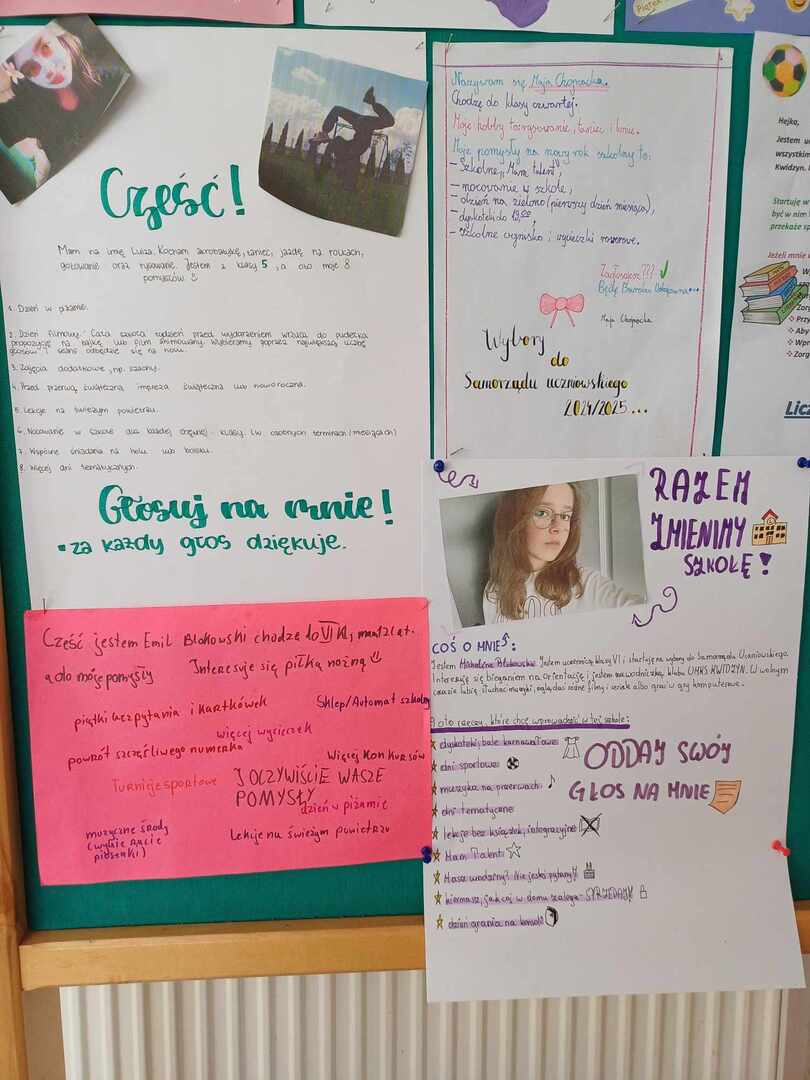 Cześć!
Mam na imię Luiza. Kocham akrobatykę, taniec, jazdę na rolkach,
gotowanie oraz rysowanie. Jestem z klasy 5, a oto moje 8
pomysłów
1. Dzień w piżamie.
2. Dzień filmowy. Cała szkoła tydzień przed wydarzeniem wrzuca do pudełka
propozycję na bajkę lub film animowany. Wybieramy poprzez największą liczbę
głosów i seans odbędzie się na holu.
3. Zajęcia dodatkowe, np. szachy.
4. Przed przerwą świąteczną impreza świąteczna lub noworoczna.
5. Lekcje na świeżym powietrzu.
6. Nocowanie w szkole dla każdej chętnej klasy. (w osobnych terminach/miesiącach)
7. Wspólne śniadania na holu lub boisku.
8. Więcej dni tematycznych.
Głosuj na mnie!
za każdy głos dziękuję.
Nazywam się Maja
Chodzę do klasy czwartej.
Moje hobby to: rysowanie, taniec i konie.
Moje pomysły na nowy rok szkolny to:
- Szkolne „Mam talent",
- nocowanie w szkole,
- dzień na zielono (pierwszy dzień miesiąca),
- dyskoteki do
- Szkolne ognisko i wycieczki rowerowe.
Zagłosujesz???
Będę Bardzo
Maja
Wybory
do
Samorządu uczniowskiego
2024/2025...
Hejka,
Jestem uc
wszystkim
Kwidzyn.
Startuję w
być w nim
przekażę sp
Jeżeli mnie
Zorg
Przy
Aby
Wpr
Zorg
Licz
Cześć jestem Emil Blokowski chodzę do VI Kl, mam 12 lat.
a oto moje pomysły
Interesuje się piłką nożną
piątki bez pytania i kartkówek
Sklep/Automat szkolny
więcej wycieczek
powrót szczęśliwego numerka
Więcej Konkursów
Turnieje sportowe
I OCZYWIŚCIE WASZE
POMYSŁY
dzień w piżamie
muzyczne środy
piosenki)
Lekcje na świeżym powietrzu
RAZEM
ZMIENIMY
SZKOŁĘ!
COŚ O MNIE:
Jestem Jestem uczennicą klasy VI i startuję na wybory do Samorządu Uczniowskiego.
Interesuję się bieganiem na orientację i jestem zawodniczką klubu UMKS KWIDZYN. W wolnym
czasie lubię słuchać muzyki, oglądać różne filmy i seriale albo grać w gry komputerowe.
A oto rzeczy, które chcę wprowadzić w tej szkole:
dyskoteki, bale karnawałowe
dni sportowe
muzyka na przerwach
dni tematyczne
lekcje bez książek, integracyjne
Mam Talent
Masz urodziny? Nie jesteś pytany!
kiermasz, jak coś w domu zalega - SPRZEDAJ!
dzień grania na konsoli
ODDAJ SWÓJ
GŁOS NA MNIE